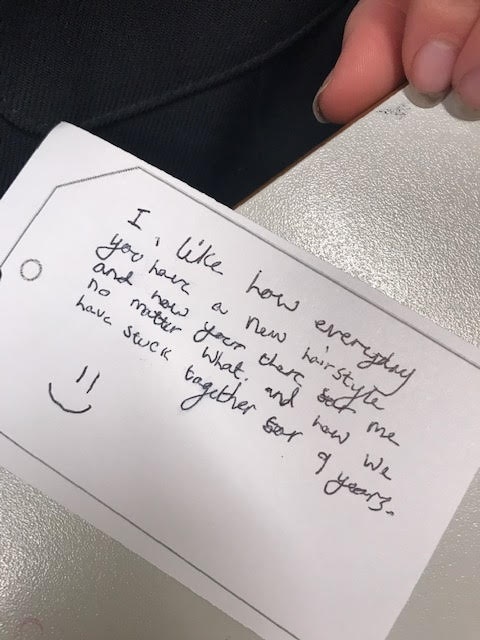 I like how everyday
you have a new hairstyle
and how your there for me
no matter what. and how we
have stuck together for 9 years.